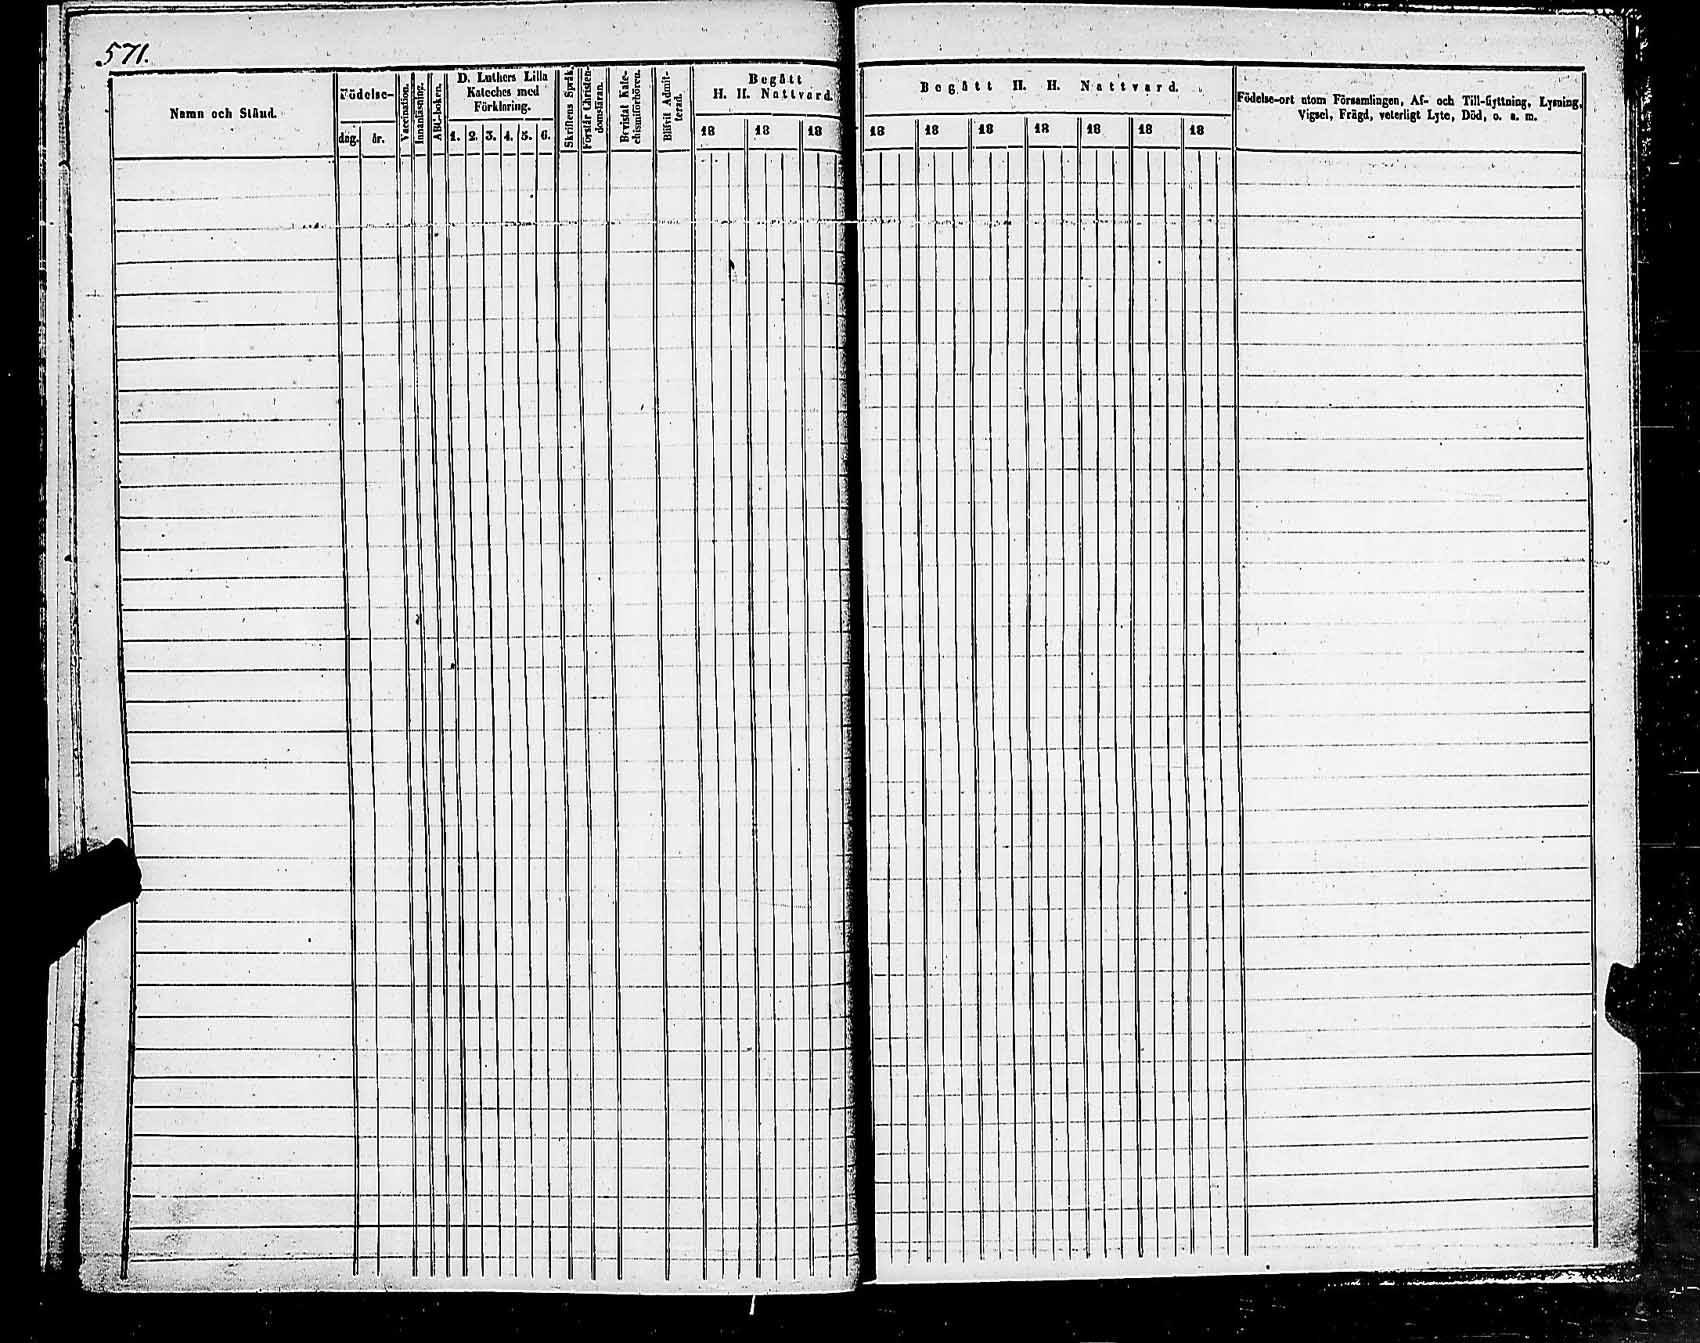 571.
Namn och Stånd.
Födelse-
dag. år.
Vaccination.
Innanläsning.
ABC-boken.
D. Luthers Lilla
Kateches med
Förklaring.
1. 2. 3. 4. 5. 6.
Skriftens Språk.
Förstår Christen-
domsläran.
Bevistat Kate-
chismiförhören.
Blifvit Admit-
terad.
Begått
H. H. Nattvard.
18 18 18
Begått H. H. Nattvard.
18 18 18 18 18 18 18
Födelse-ort utom Församlingen, Af- och Till-flyttning, Lysning,
Vigsel, Frägd, veterligt Lyte, Död, o. s. m.